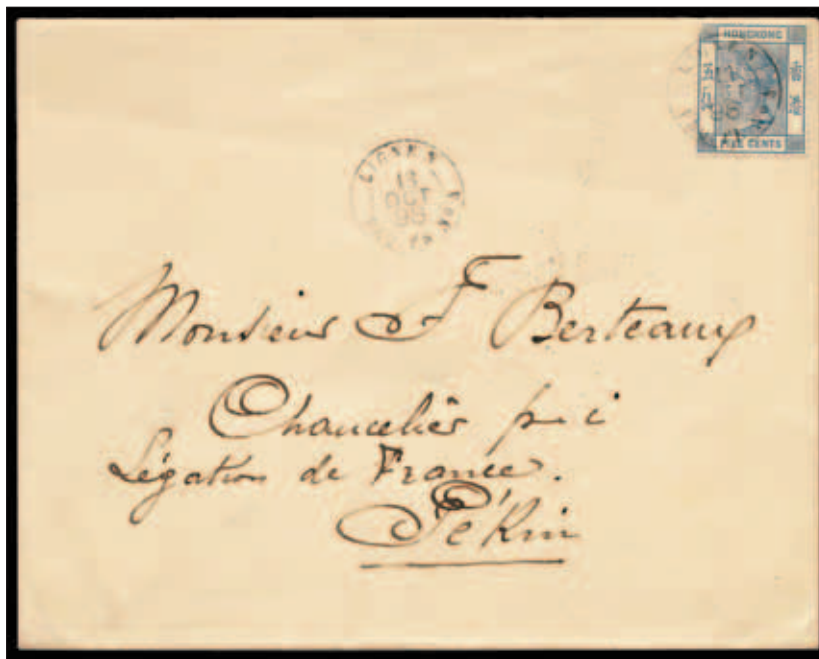 HONGKONG
FIVE CENTS
LIGNE N
OCT
Monsieur F Berteaux
Chancelier p. i
Légation de France.
Pékin